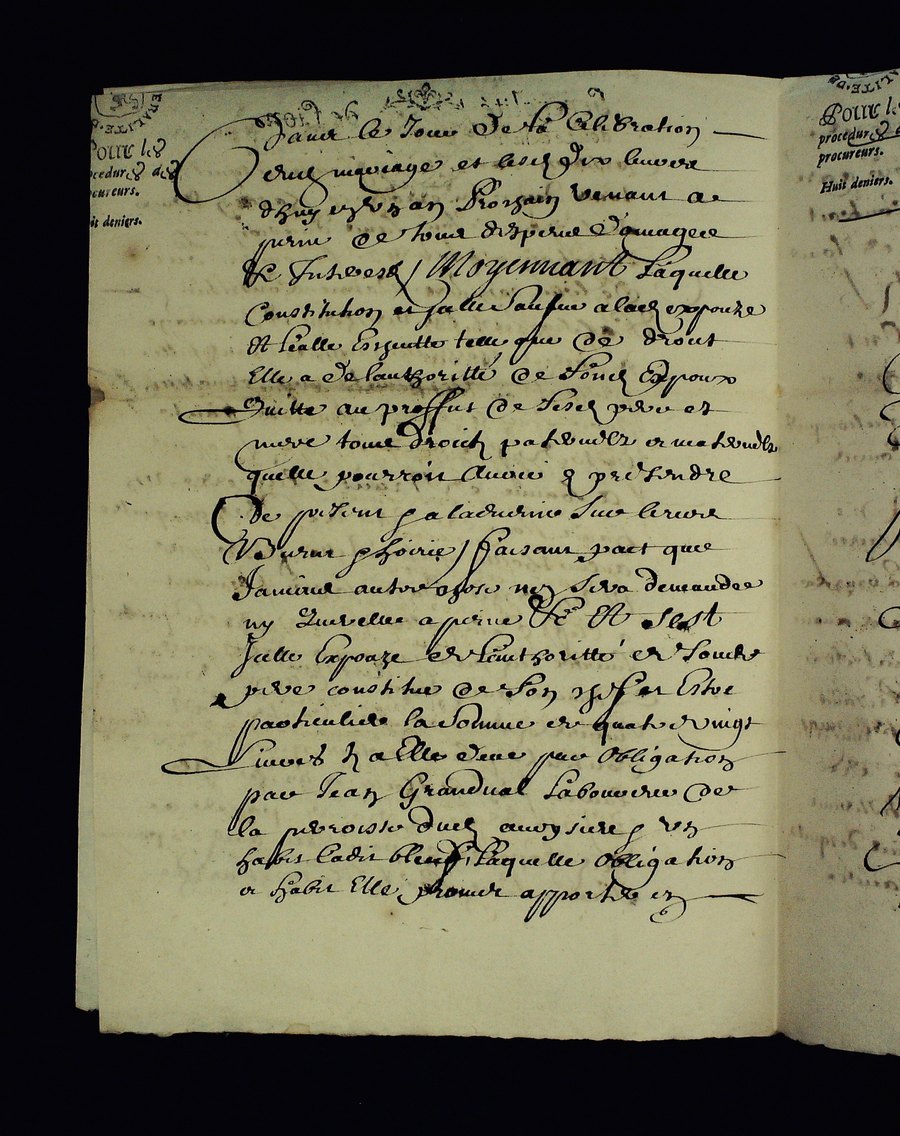 ERALITE DE
Pour les
procedures des
procureurs.
Huit deniers.
davant le Jour de la Celebration
dud mariage et lesd dix livres
dhuy en un an Prochain venant a
peine de tous despens domages
& Interest / Moyennant Laquelle
Constitution et Jcelle sauſue a lad expouze
Et Icelle Ensuitte telle que de droit
Elle a de lauthoritté de sond Expoux
Quitté au proffit de sesd pere et
mere tous droictz paternelz et maternelz
quelle pourroit avoir & prétendre
De present & a ladvenir sur leurs
Biens & hoirie / faisant pact que
Jamais autre chose ny sera demandee
ny Querellee a peine &c Et sest
Jcelle Expouze de Lauthoritté de sondit
pere constitue de son chef et Estoc
particuliere la somme de quatre vingt
Livres a Elle deue par Obligation
par Jean Grandual Laboureur de
la paroisse dud & un
habit ladit bleuf, Laquelle Obligation
et habit Elle promet apporter en
ERALITE DE
Pour les
procedures &
procureurs.
Huit deniers.